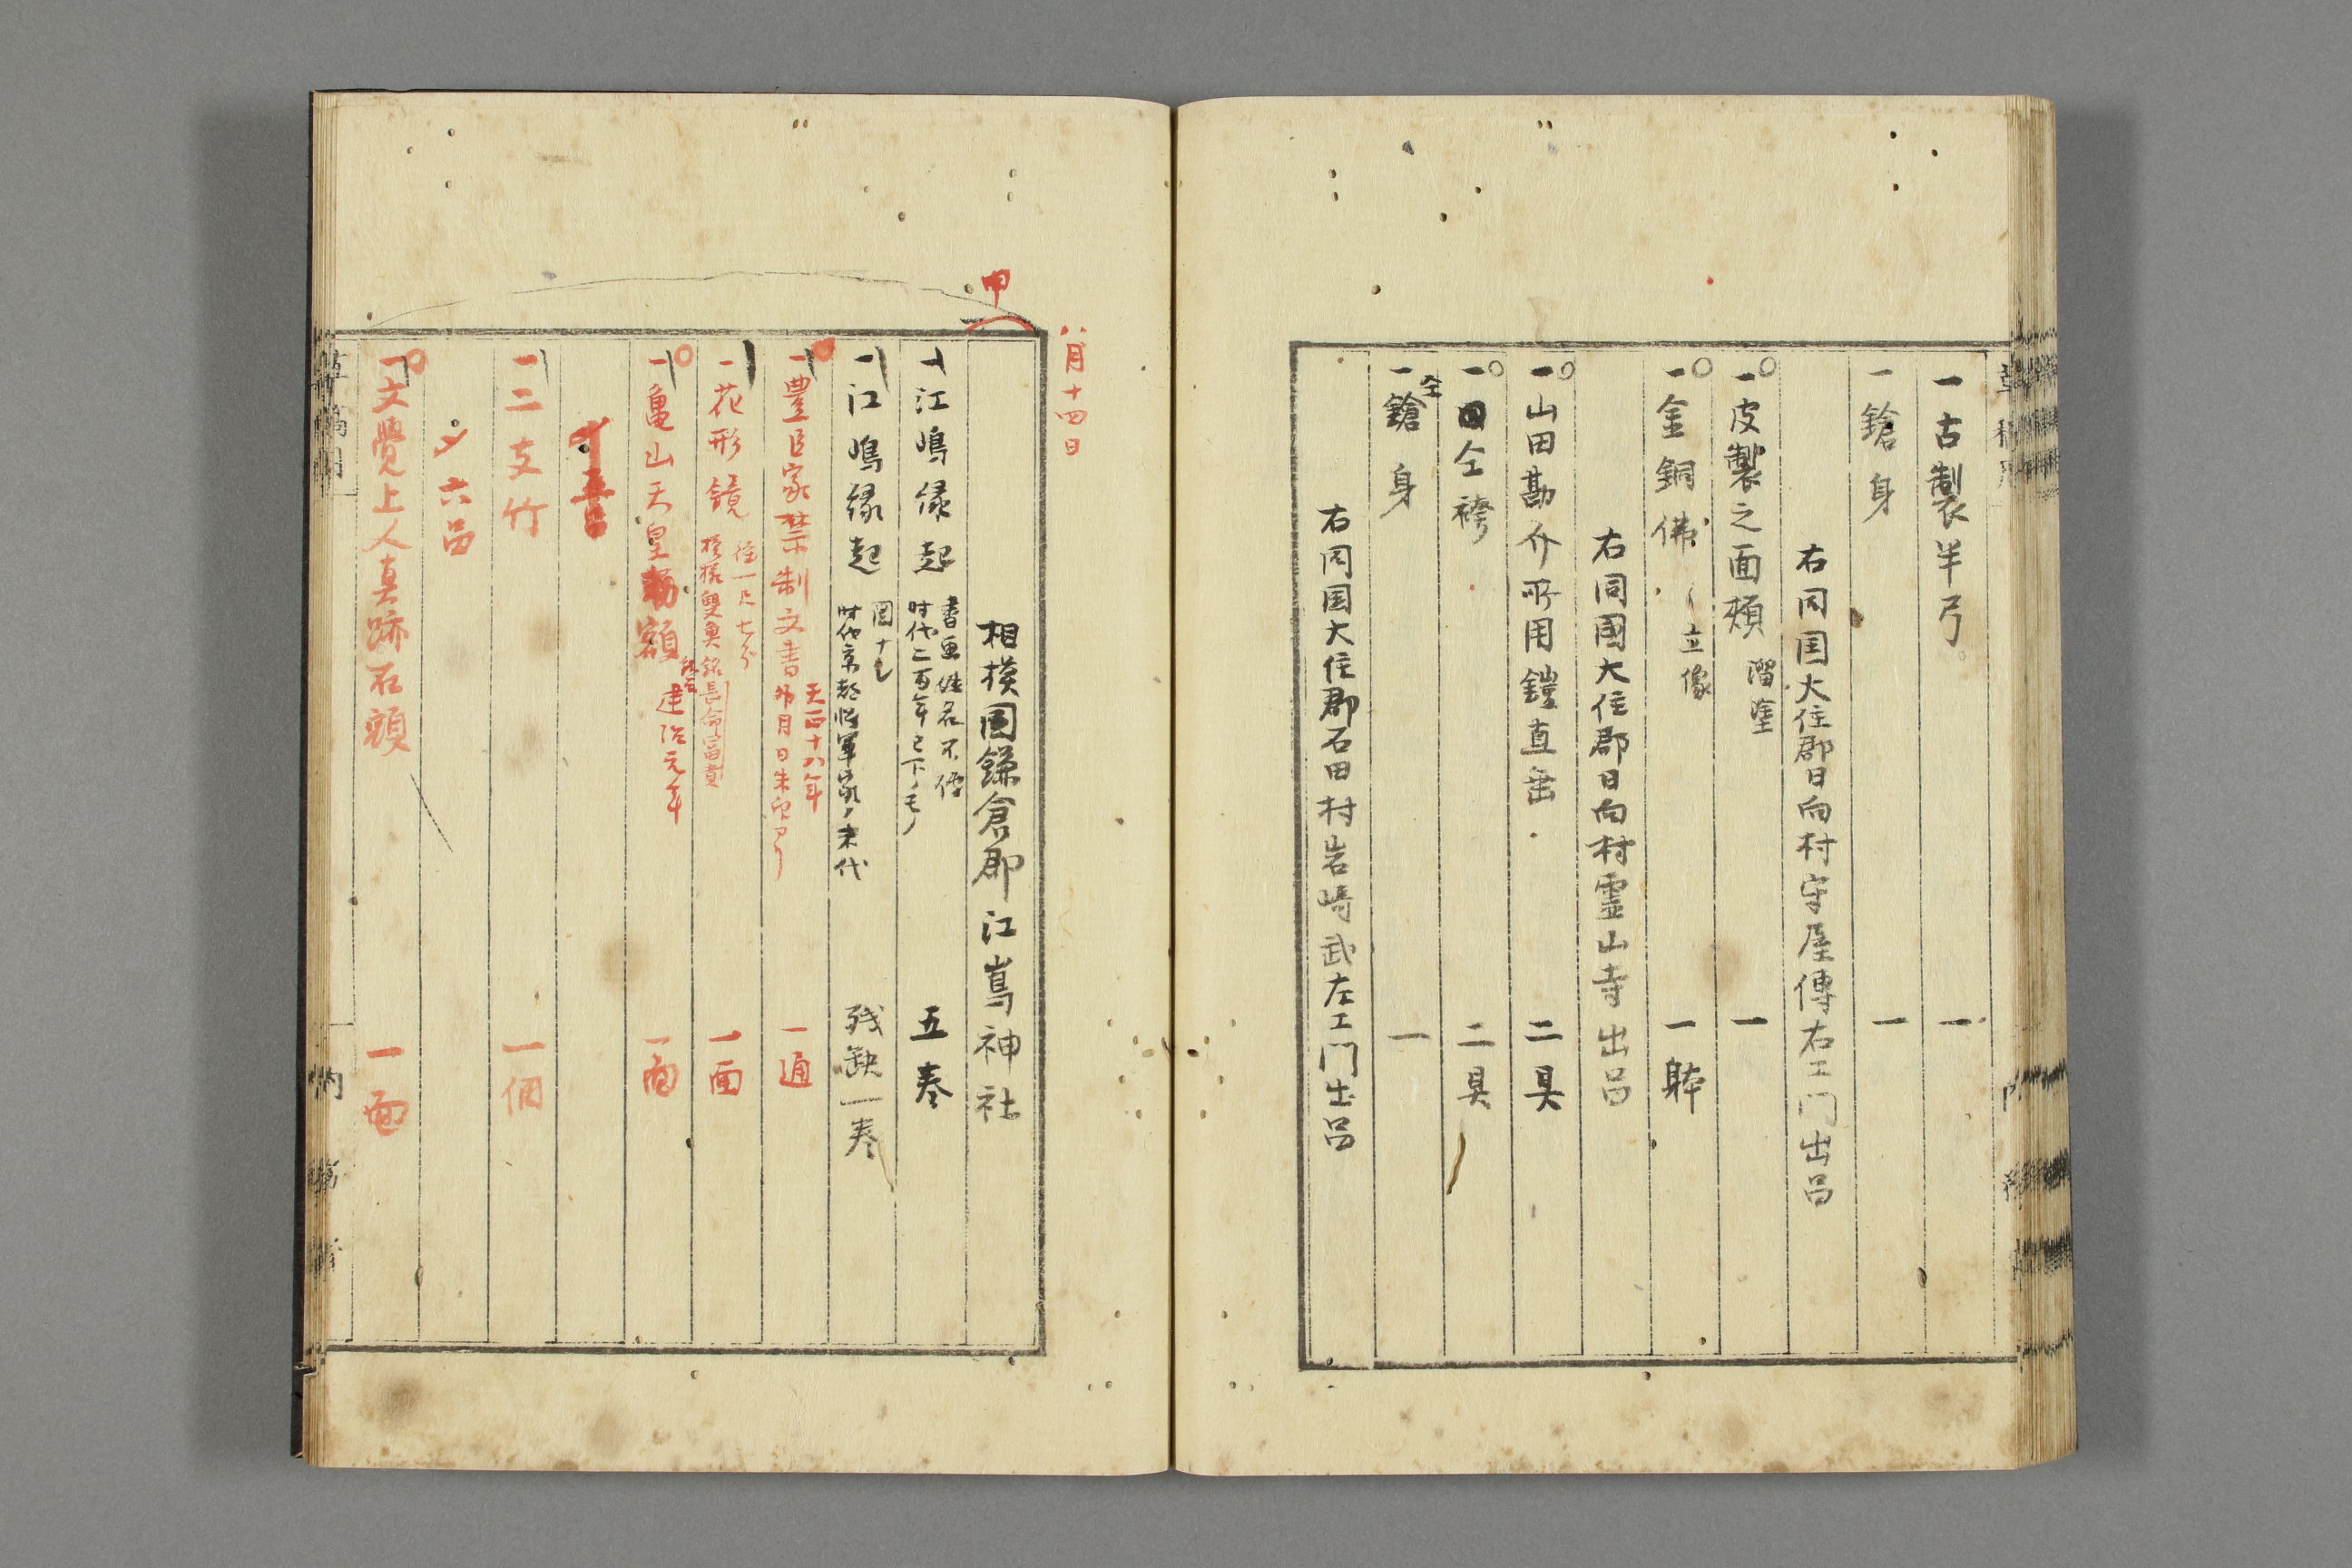 一古製半弓 一
一鎗身 一
右同国大住郡日向村守屋傳右エ門出品
一皮製之面頬 溜塗 一
一金銅佛 立像 一躰
右同國大住郡日向村霊山寺出品
一山田勘介所用鎧直垂 二具
一仝袴 二具
一仝鎗身 一
右同国大住郡石田村岩崎武左エ門出品
八月十四日
甲
相模国鎌倉郡江嶌神社
一江嶋縁起 書画姓名不傳 時代二百年已下ノモノ 五巻
一江嶋縁起 残缺一巻
一豊臣家禁制文書 天正十八年 一通
一花形鏡 径一尺七分 模様雙魚銘長命富貴 一面
一亀山天皇勅額 建治元年 一面
一二支竹 一個
〆六品
一文覺上人真跡石頭 一面